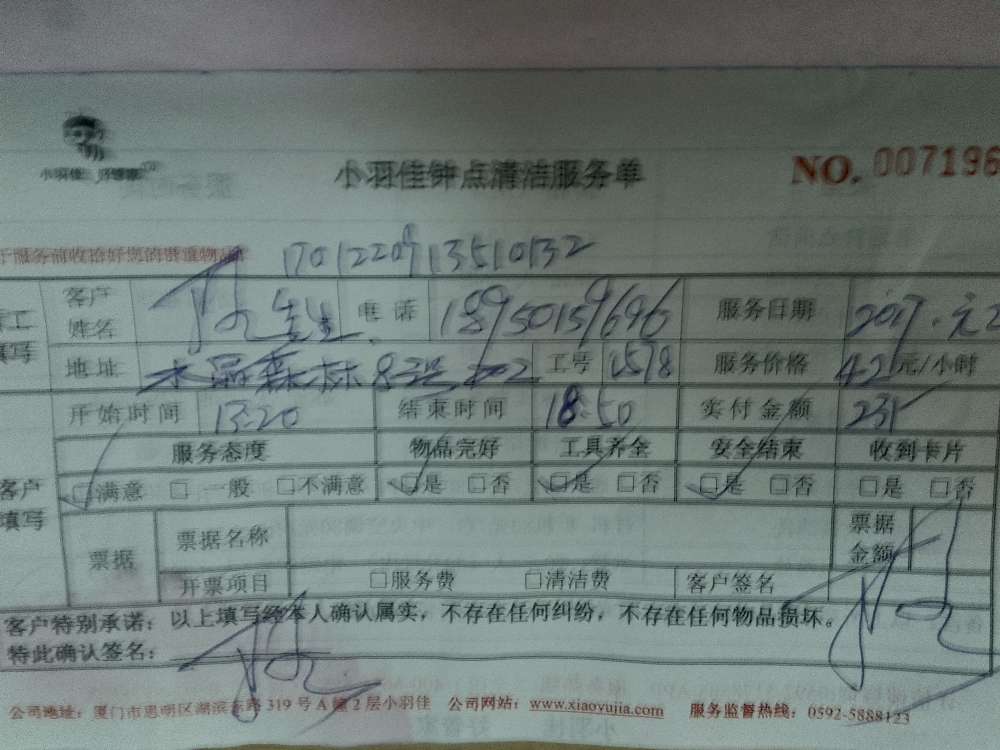 小羽佳
小羽佳钟点清洁服务单
NO. 007196
于服务前收拾好您的贵重物品
17012209113510132
客户姓名 先生 电话 18950159696 服务日期 2017.元2
填写 地址 水晶森林8号 202 工号 1578 服务价格 42元/小时
开始时间 13:20 结束时间 18:50 实付金额 231
服务态度 物品完好 工具齐全 安全结束 收到卡片
客户填写 □满意 □一般 □不满意 □是 □否 □是 □否 □是 □否 □是 □否
票据 票据名称 票据金额
开票项目 □服务费 □清洁费 客户签名
客户特别承诺：以上填写经本人确认属实，不存在任何纠纷，不存在任何物品损坏。
特此确认签名：
公司地址：厦门市思明区湖滨东路319号A幢2层小羽佳 公司网站：www.xiaoyujia.com 服务监督热线：0592-5888123